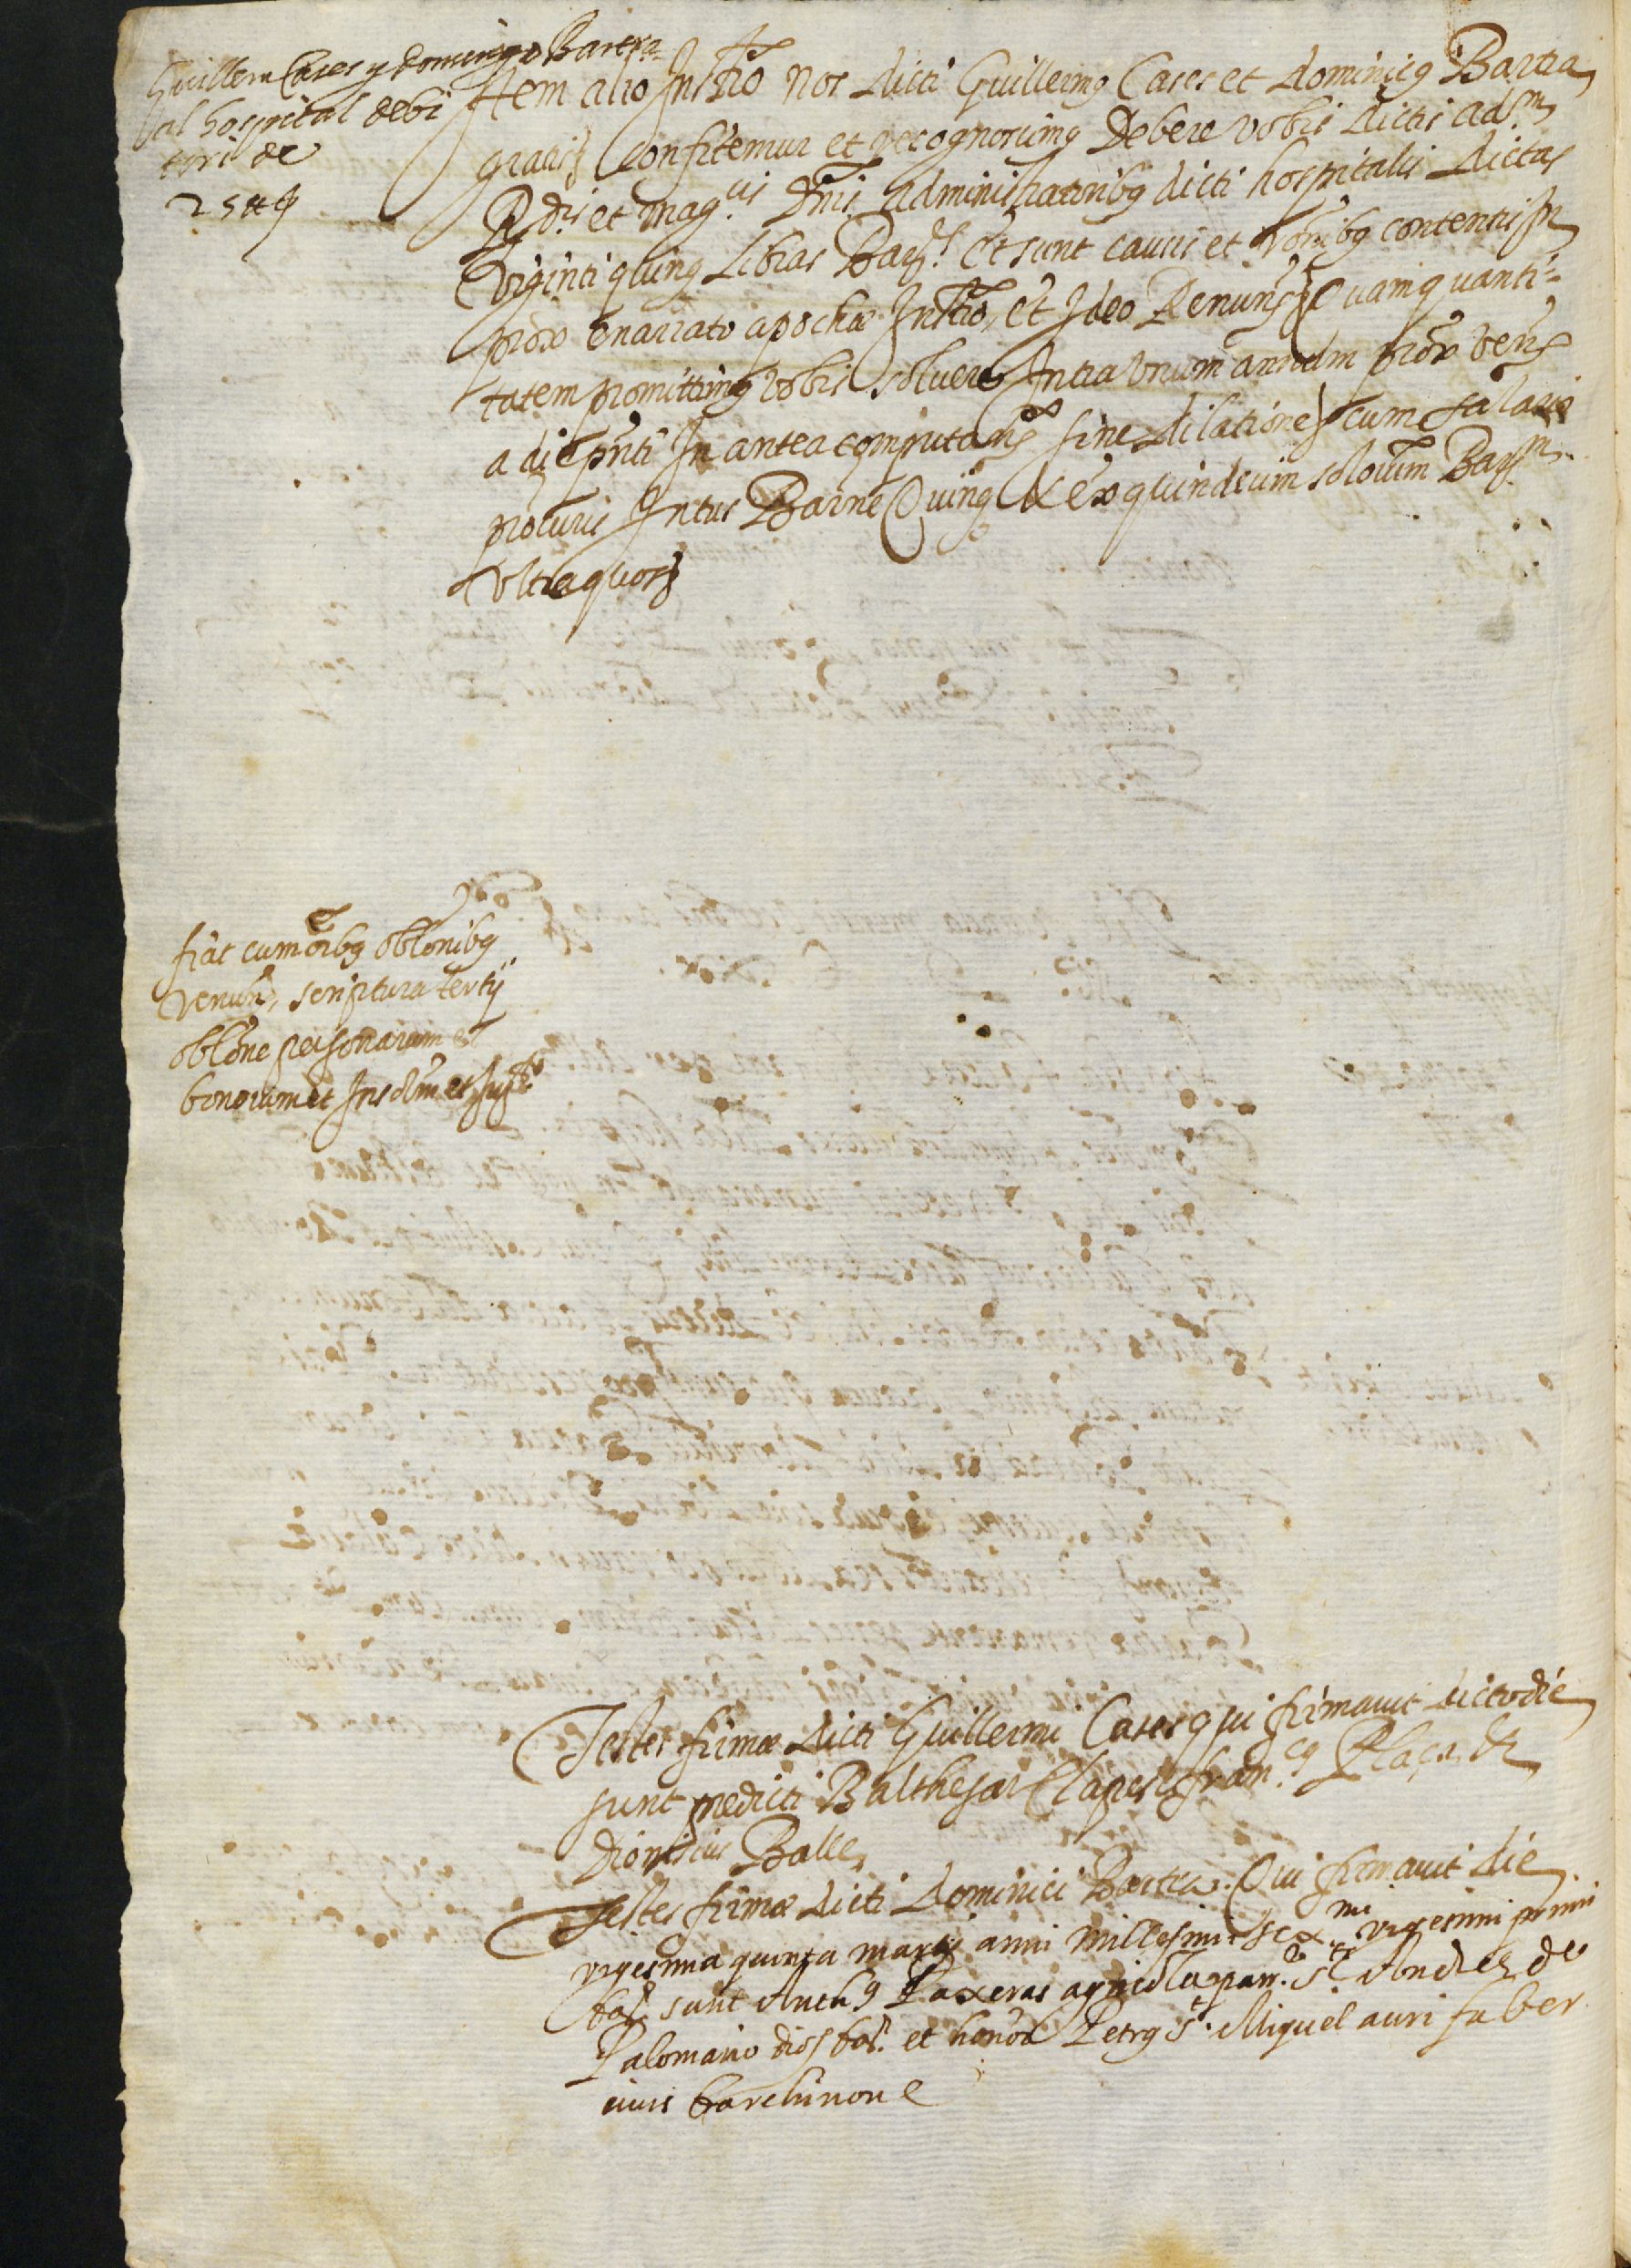 Guillem Cases y Domingo Bartra
al hospital debi
tori de
25 ₶
Item alio Instrō nos dicti Guillermꝯ Cases et Dominicꝯ Bartra
gratis Confitemur et recognoscimꝯ Debere vobis dictis adm
Rdis et magcis Dnis Administratoribꝯ dicti hospitalis dictas
viginti quinqꝫ Libras Bars. Et sunt causis et rōnibꝯ contentis In
prox enarrato apochæ Instrō, et Ideo Renuns Quam quanti=
tatem promittimꝯ vobis solvere Intra Unum annum prox vens
a die pnti In antea computans sine dilatione cum salario
procuris Intus Barne Quinqꝫ & ex quindecim solorum Bars
ultra quos
fiat cum oibꝯ oblonibꝯ
renuns, scriptura tertij
oblōne personarum et
bonorum et Insolm et Jurto
Testes firmæ dicti Guillermi Cases qui firmavit dicto die
sunt predicti Balthesar Clapes francꝯ Plaça, et
Dionisius Balle
Testes firmæ dicti Dominici Bartra. Qui firmavit die
vigesima quinta martij anni Millesimi sexmi vigesimi primi
sunt Anthꝯ Paxeras agricola parrae Sti Andreæ de
Palomario dios bar. et honor Petrꝯ St. Miquel auri faber
civis barchinone